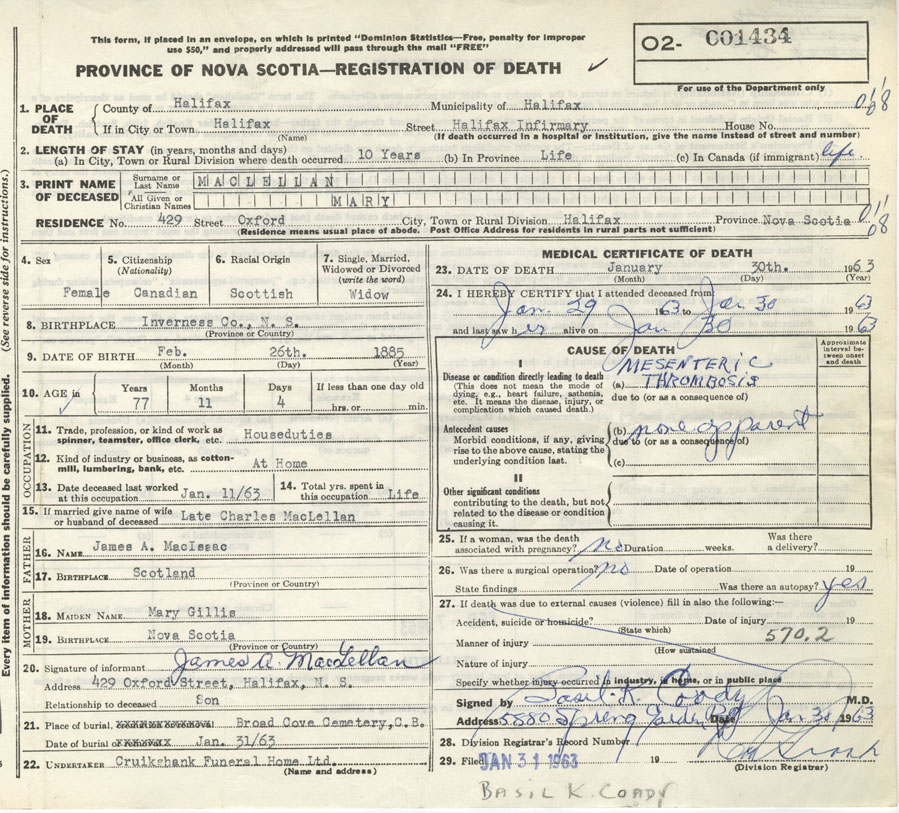 This form, if placed in an envelope, on which is printed "Dominion Statistics—Free, penalty for improper
use $50," and properly addressed will pass through the mail "FREE"
PROVINCE OF NOVA SCOTIA—REGISTRATION OF DEATH ✓
O2- C01434
For use of the Department only
(See reverse side for instructions.)
Every item of information should be carefully supplied.
1. PLACE OF DEATH
County of Halifax Municipality of Halifax
If in City or Town Halifax Street Halifax Infirmary House No.
(Name) (If death occurred in a hospital or institution, give the name instead of street and number)
2. LENGTH OF STAY (in years, months and days)
(a) In City, Town or Rural Division where death occurred 10 Years (b) In Province Life (c) In Canada (if immigrant) life
3. PRINT NAME OF DECEASED
Surname or Last Name MACLELLAN
All Given or Christian Names MARY
RESIDENCE No. 429 Street Oxford City, Town or Rural Division Halifax Province Nova Scotia
(Residence means usual place of abode. Post Office Address for residents in rural parts not sufficient)
4. Sex
Female
5. Citizenship
(Nationality)
Canadian
6. Racial Origin
Scottish
7. Single, Married,
Widowed or Divorced
(write the word)
Widow
8. BIRTHPLACE Inverness Co., N. S.
(Province or Country)
9. DATE OF BIRTH Feb. 26th. 1885
(Month) (Day) (Year)
10. AGE in
Years Months Days If less than one day old
77 11 4 hrs. or min.
OCCUPATION
11. Trade, profession, or kind of work as
spinner, teamster, office clerk, etc. Houseduties
12. Kind of industry or business, as cotton-
mill, lumbering, bank, etc. At Home
13. Date deceased last worked
at this occupation Jan. 11/63
14. Total yrs. spent in
this occupation Life
15. If married give name of wife
or husband of deceased Late Charles MacLellan
FATHER
16. NAME James A. MacIsaac
17. BIRTHPLACE Scotland
(Province or Country)
MOTHER
18. MAIDEN NAME Mary Gillis
19. BIRTHPLACE Nova Scotia
(Province or Country)
20. Signature of informant James A. MacLellan
Address 429 Oxford Street, Halifax, N. S.
Relationship to deceased Son
21. Place of burial, Broad Cove Cemetery, C.B.
Date of burial or Jan. 31/63
22. UNDERTAKER Cruikshank Funeral Home Ltd.
(Name and address)
MEDICAL CERTIFICATE OF DEATH
23. DATE OF DEATH January 30th. 1963
(Month) (Day) (Year)
24. I HEREBY CERTIFY that I attended deceased from
Jan. 29 1963 to Jan 30 1963
and last saw her alive on Jan 30 1963
CAUSE OF DEATH
Approximate interval between onset and death
I
Disease or condition directly leading to death
(This does not mean the mode of
dying, e.g., heart failure, asthenia,
etc. It means the disease, injury, or
complication which caused death.)
(a) MESENTERIC
THROMBOSIS
due to (or as a consequence of)
Antecedent causes
Morbid conditions, if any, giving
rise to the above cause, stating the
underlying condition last.
(b) none apparent
due to (or as a consequence of)
(c)
II
Other significant conditions
contributing to the death, but not
related to the disease or condition
causing it.
25. If a woman, was the death
associated with pregnancy? no Duration weeks. Was there
a delivery?
26. Was there a surgical operation? no Date of operation 19
State findings Was there an autopsy? yes
27. If death was due to external causes (violence) fill in also the following:—
Accident, suicide or homicide? Date of injury 19
(State which)
570.2
Manner of injury
(How sustained
Nature of injury
Specify whether injury occurred in industry, in home, or in public place
Signed by Basil K. Coady M.D.
Address 5880 Spring Garden Rd Date Jan 30 1963
28. Division Registrar's Record Number
29. Filed JAN 31 1963 19
(Division Registrar)
BASIL K. COADY